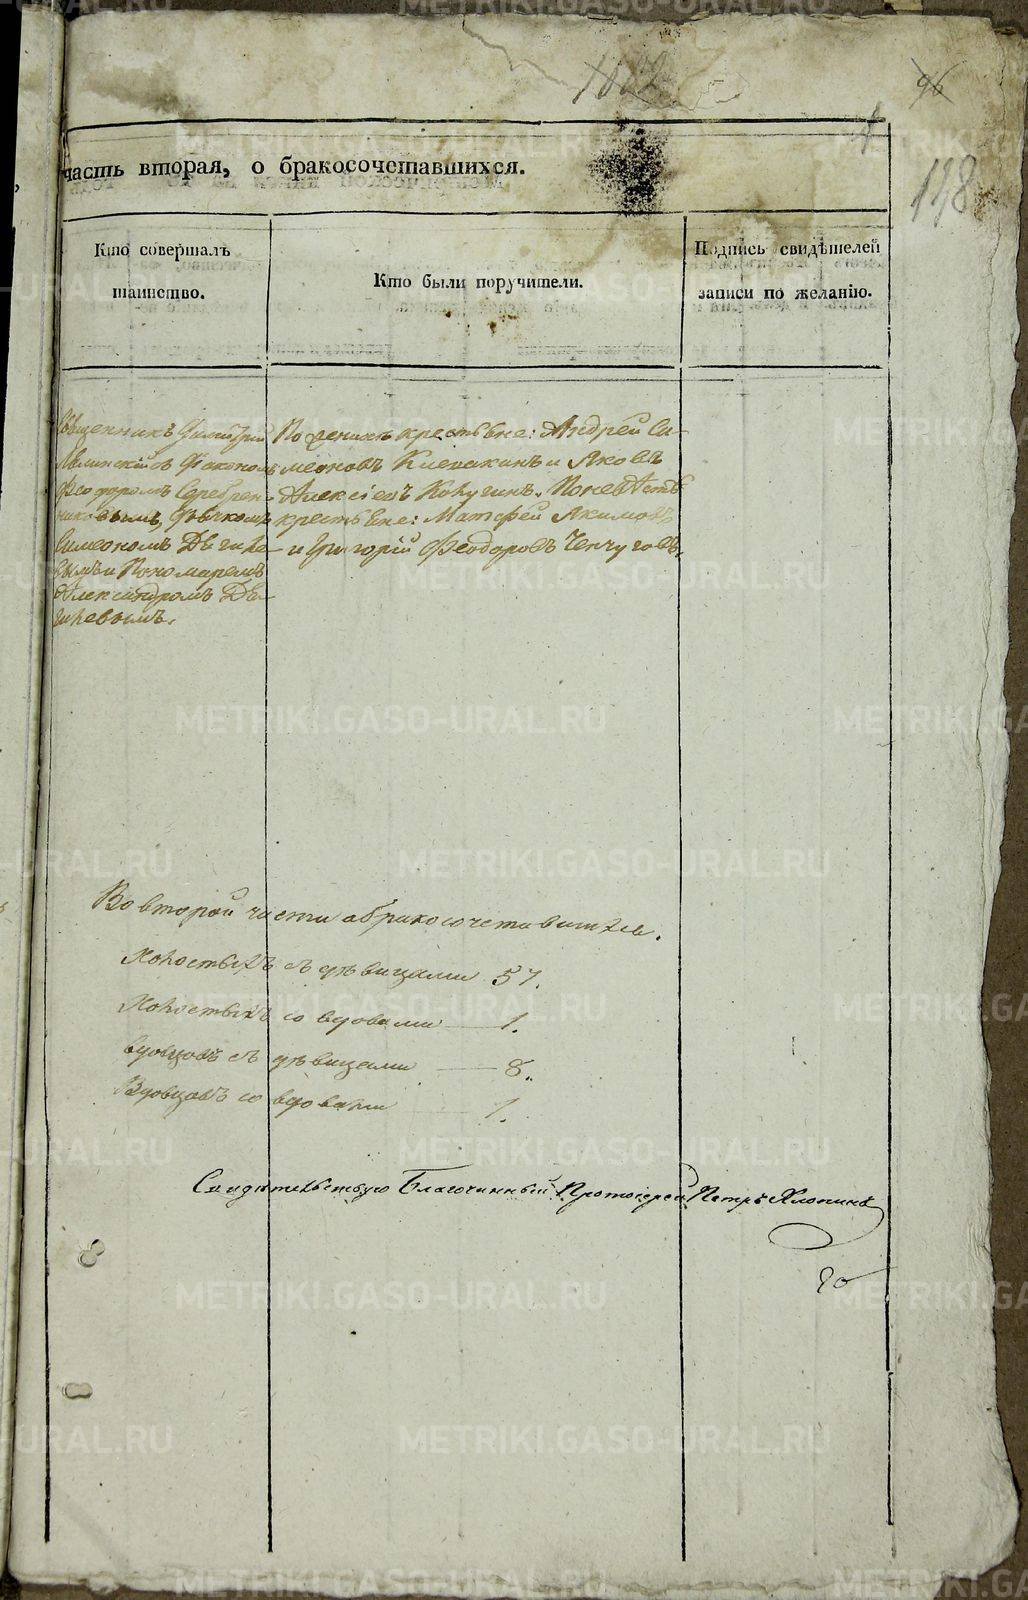 96
148
часть вторая, о бракосочетавшихся.
Кто совершалъ
таинство.
Кто были поручители.
Подпись свидѣтелей
записи по желанію.
Священникъ Димитрій
діакономъ
Феодоромъ Серебрен-
никовымъ, дьячкомъ
Симеономъ Дяги-
вымъ и Пономаремъ
Александромъ Дя-
гилевымъ.
По женихѣ крестьяне: Андрей Си-
меоновъ Клепакинъ и Яковъ
Алексіевъ Кокугинъ. По невѣстѣ
крестьяне: Матѳей Якимовъ
и Григорій Феодоровъ Ченчуговъ.
Во второй части о бракосочетавшихся.
Холостыхъ съ дѣвицами 57.
Холостыхъ со вдовами 1.
Вдовцовъ съ дѣвицами 8.
Вдовцовъ со вдовами 1.
Свидѣтельствую Благочинный Протоіерей Петръ Хлопинъ
METRIKI.GASO-URAL.RU